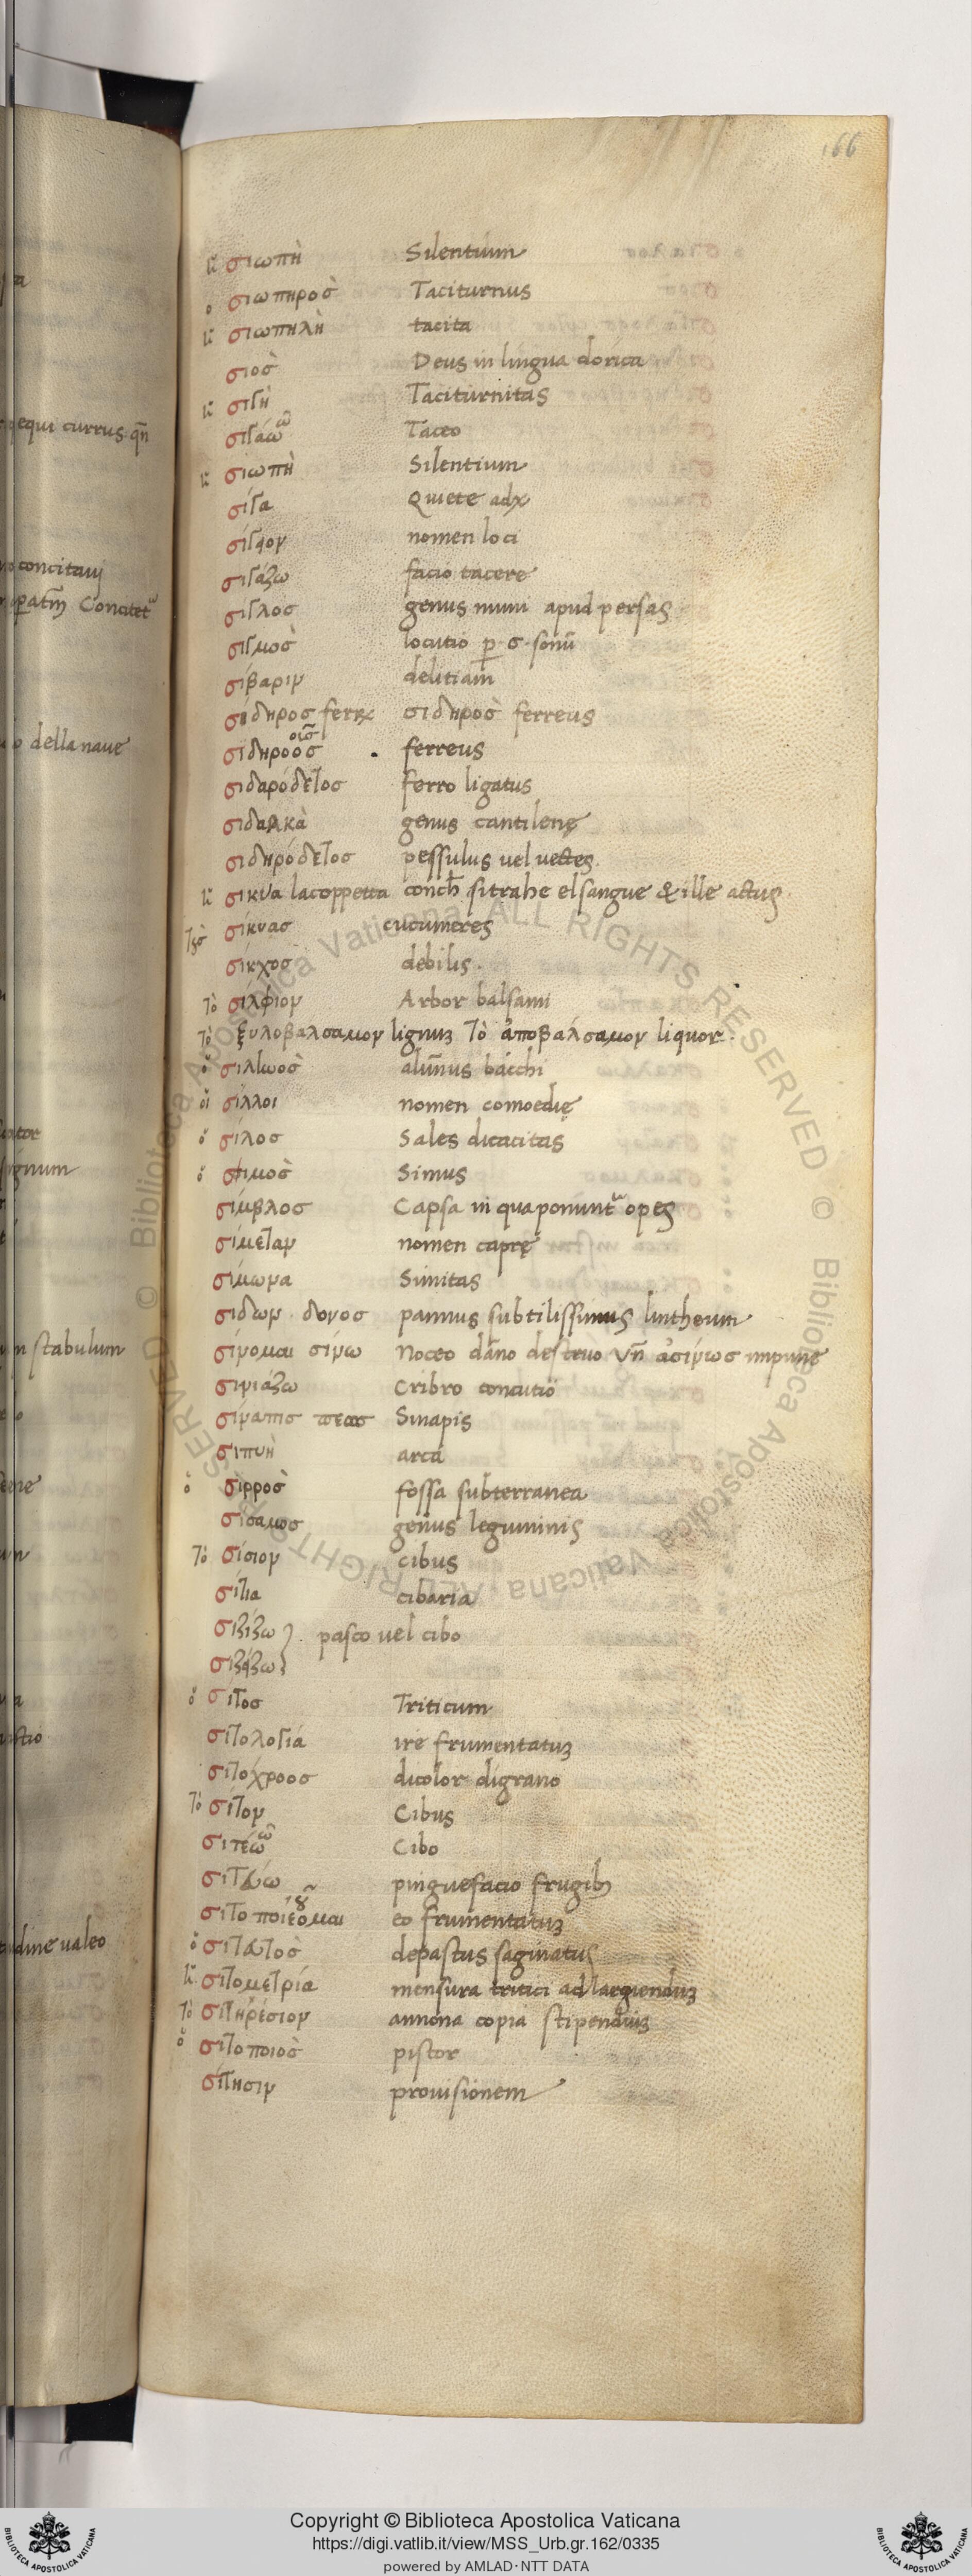 166
ἡ σιωπὴ Silentium
ὁ σιωπηροσ̀ Taciturnus
ἡ σιωπηλὴ tacita
σιοσ̀ Deus in lingua dorica
ἡ σιγὴ Taciturnitas
σιγάω ῶ Taceo
ἡ σιωπὴ Silentium
σίγα Quiete adx
σίγφον nomen loci
σιγάζω facio tacere
σίγλοσ genus numi apud persas
σιγμοσ̀ locutio p̱ ·σ· sonū
σίβαριν delitiam
σίδηροσ ferrx σιδηροσ̀ ferreus
σιδηροόσ οῦσ ferreus
σιδαρόδετοσ ferro ligatus
σιδαρκὰ genus cantilenę
σιδηρόδετοσ pessulus uel uectes
ἡ σικύα la coppetta conch̄ si trahe el sangue & ille actus
τ̀ȣσ σίκυασ cucumeres
σίκχοσ debilis
τὸ σίλφιον Arbor balsami
τὸ ξυλοβάλσαμον lignuꝫ τὸ ἀποβάλσαμον liquor
ὁ σιλωοσ̀ alūnus bacchi
οἱ σίλλοι nomen comoedię
ὁ σίλοσ Sales dicacitas
ὁ σιμοσ̀ Simus
σίμβλοσ Capsa in qua ponunt̄ opes
σίμεταν nomen caprę
σίμωμα Simitas
σιδων · δονοσ pannus subtilissimus lintheum
σίνομαι σίνω Noceo dāno destruo Vn̄ ἀσίνωσ impune
σινιάζω Cribro concutio
σίναπισ πεοσ Sinapis
σιπυὴ arca
ὁ σιρροσ̀ fossa subterranea
σίσαμοσ genus leguminis
τὸ σίσιον cibus
σίτια cibaria
σιζίζω } pasco uel cibo
σιζάζω
ὁ σῖτοσ Triticum
σιτολογία ire frumentatuꝫ
σιτόχροοσ dicolor di grano
τὸ σίτον Cibus
σιτέω ῶ Cibo
σιτεύω pinguefacio frugib;
σιτοποιέομαι οῦ eo frumentatuꝫ
ὁ σιτευτοσ̀ depastus saginatus
ἡ σιτομετρία mensura tritici ad largienduꝫ
τὸ σιτηρέσιον annona copia stipendiuꝫ
ὁ σιτοποιοσ̀ pistor
σίτησιν prouisionem
equi currus qn̄
concitauj
o della naue
stabulum
Copyright © Biblioteca Apostolica Vaticana
https://digi.vatlib.it/view/MSS_Urb.gr.162/0335
powered by AMLAD·NTT DATA